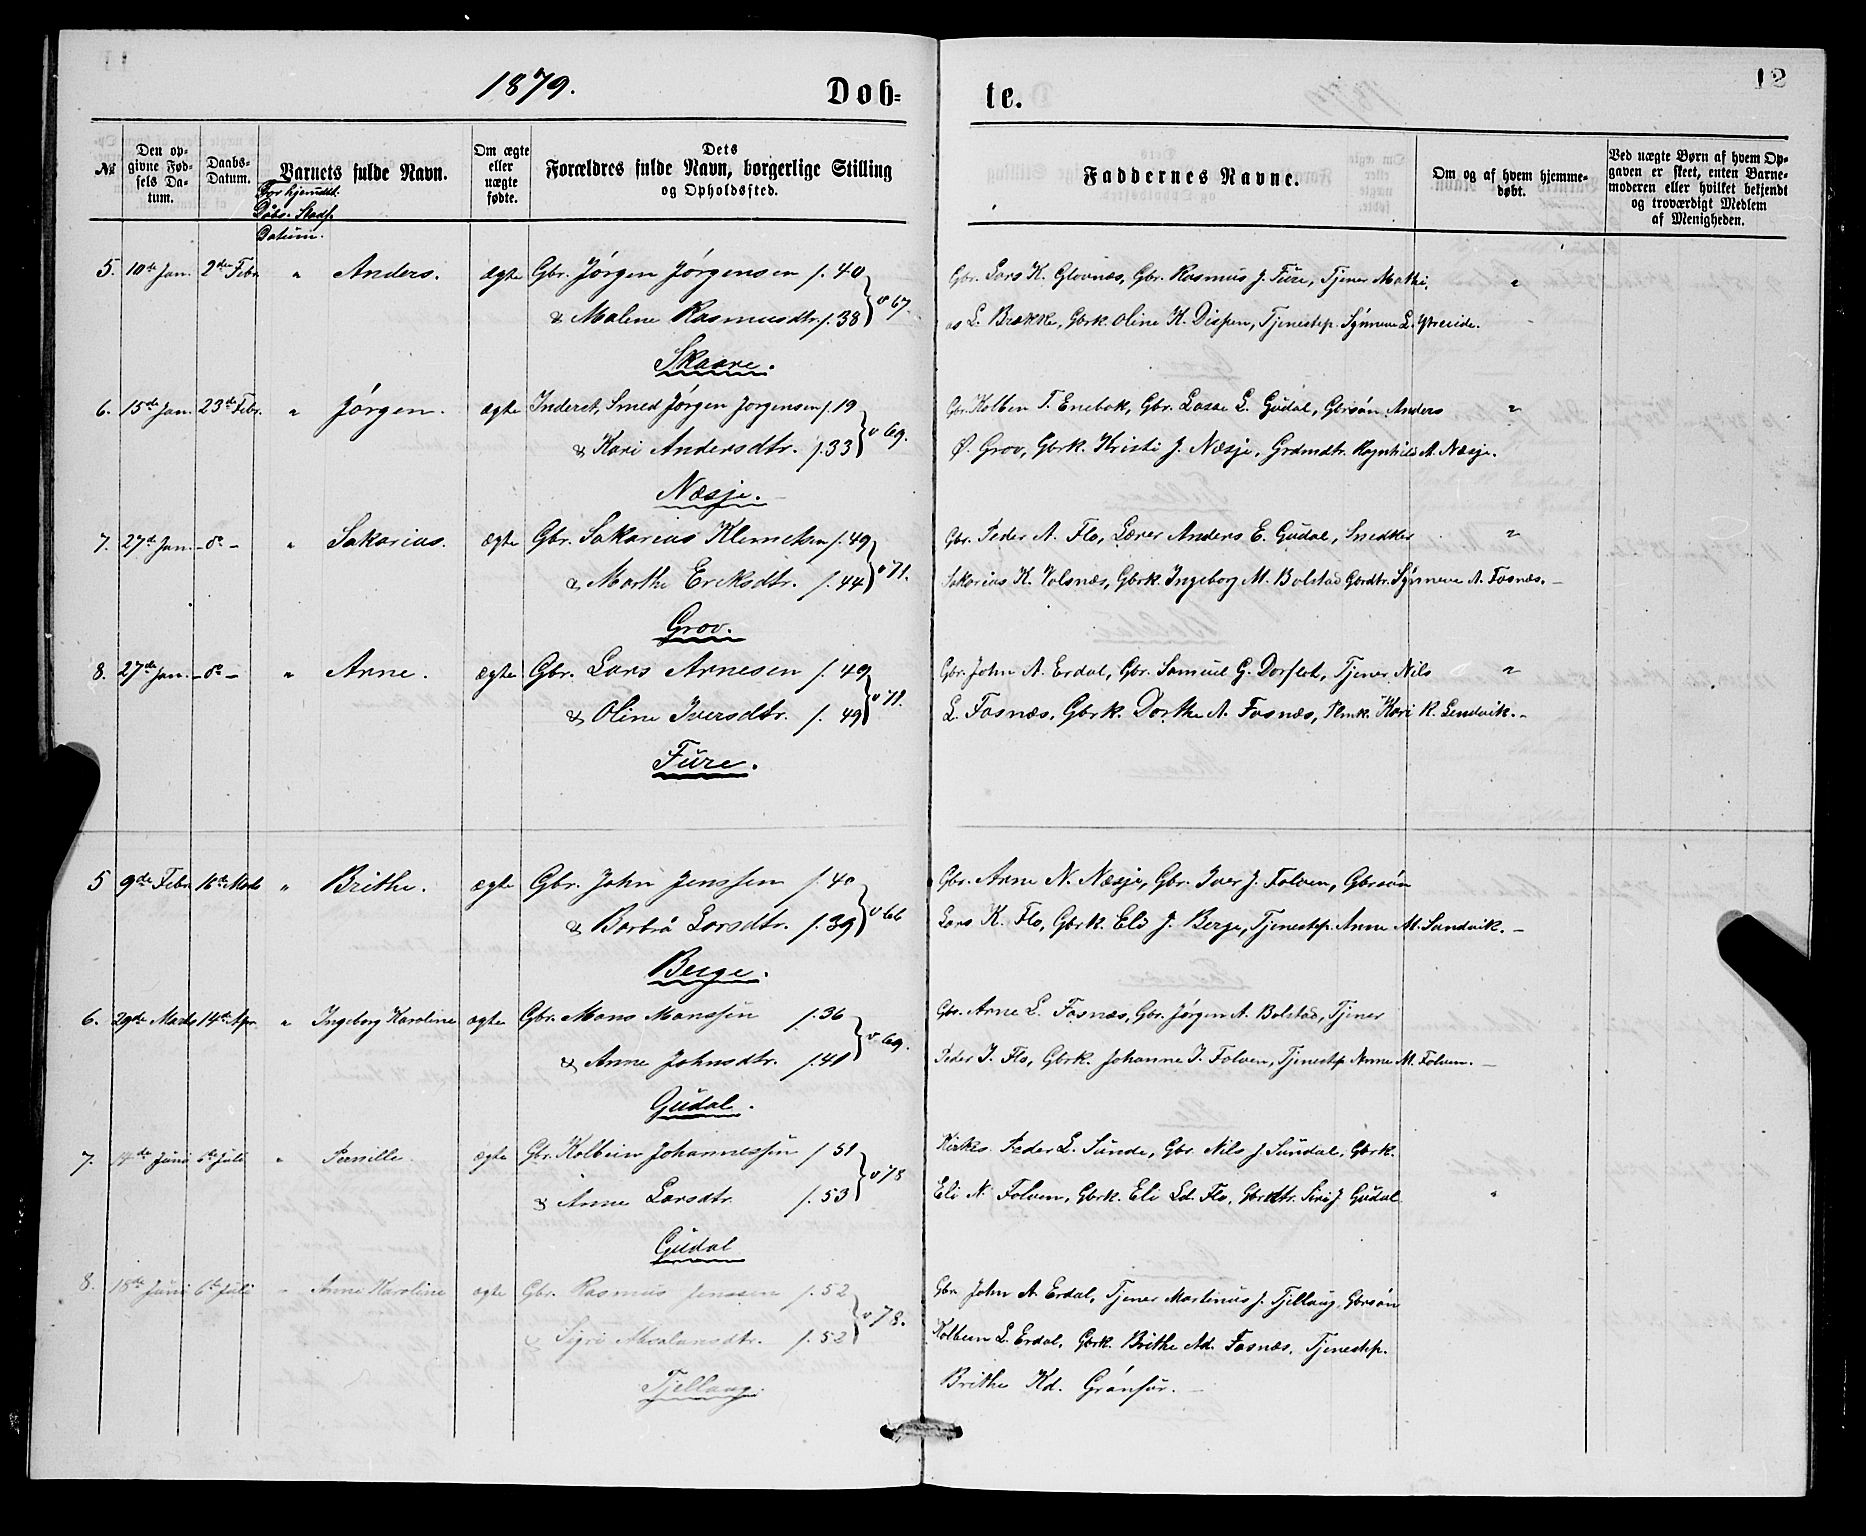 1879.
Døb=
te.
12
№
Den op-
givne Fød-
sels Da-
tum.
Daabs-
Datum.
For hjemdbt.
Døbs. Stadf.
Datum.
Barnets fulde Navn.
Om ægte
eller
uægte
fødte.
Dets
Forældres fulde Navn, borgerlige Stilling
og Opholdssted.
Faddernes Navne.
Om og af hvem hjemme-
døbt.
Ved uægte Børn af hvem Op-
gaven er skeet, enten Barne-
moderen eller hvilket bekjendt
og troværdigt Medlem
af Menigheden.
5. 10de Jan. 2den Febr. " Anders. ægte Gbr. Jørgen Jørgensen f. 40 Gbr. Lars K. Glovnæs, Gbr. Rasmus J. Fure, Tjener Mathi- "
& Malene Rasmusdtr. f. 38 v 67. as L. Brække, Gbrk. Oline K. Dispen, Tjenestep. Synneve L. Ytreeide.
Skaare.
6. 15de Jan. 23de Febr. " Jørgen. ægte Inderst, Smed Jørgen Jørgensen f. 19 Gbr. Kolben T. Enebok, Gbr. Lasse L. Gudal, Gbrsøn Anders "
& Kari Andersdtr. f. 33 v 69. Ø. Grov, Gbrk. Kristi J. Næsje, Grdmdtr. Ragnhild A. Næsje.
Næsje.
7. 27de Jan. - do - " Sakarias. ægte Gbr. Sakarias Klemetsen f. 49 Gbr. Peder A. Flo, Lærer Anders E. Gudal, Snedker "
& Marthe Eriksdtr. f. 44 v 71. Sakarias K. Volsnæs, Gbrk. Ingeborg M. Bolstad Gbrdtr. Synneve A. Fosnæs. -
Grov.
8. 27de Jan. - do - " Arne. ægte Gbr. Lars Arnesen f. 49 Gbr. John A. Erdal, Gbr. Samuel G. Dorflot, Tjener Nils "
& Oline Iversdtr. f. 49 v 71. L. Fosnæs, Gbrk. Dorthe A. Fosnæs, Plmk. Kari R. Sendvik. -
Fure.
5 9de Febr. 16de Marts " Brithe. ægte Gbr. John Jenssen f. 40 Gbr. Arne N. Næsje, Gbr. Iver J. Folven, Gbrsøn
& Barbrå Larsdtr. f. 39 v 66 Lars K. Flo, Gbrk. Eli J. Berge, Tjenestep. Anne M. Sandvik. -
Berge.
6. 29de Marts 14de Apr. " Ingeborg Karoline ægte Gbr. Mons Monssen f. 36 Gbr. Arne L. Fosnæs, Gbr. Jørgen A. Bolstad, Tjener
& Anne Johnsdtr. f. 41 v 69. Peder I. Flo, Gbrk. Johanne I. Folven, Tjenestep Anne M. Folven. -
Gudal.
7. 14de Juni 6te Juli " Pernille. ægte Gbr. Kolbein Johannessen f 51 Kirkes. Peder L. Sunde, Gbr. Nils J. Sundal, Gbrk.
& Anne Larsdtr. f. 53 v 78 Eli N. Folven, Gbrk. Eli Ld. Flo, Gbrdtr. Siri J. Gudal "
Gudal
8. 18de Juni 6te Juli " Anne Karoline ægte Gbr. Rasmus Jenssen f. 52 Gbr. John A. Erdal, Tjener Martinus J. Tjellaug, Gbrsøn
& Sigri f. 52 v 78. Kolbein L. Erdal, Gbrk. Brithe Ad. Fosnæs, Tjenestep.
Tjellaug. Brithe Kd. Grønfur. -